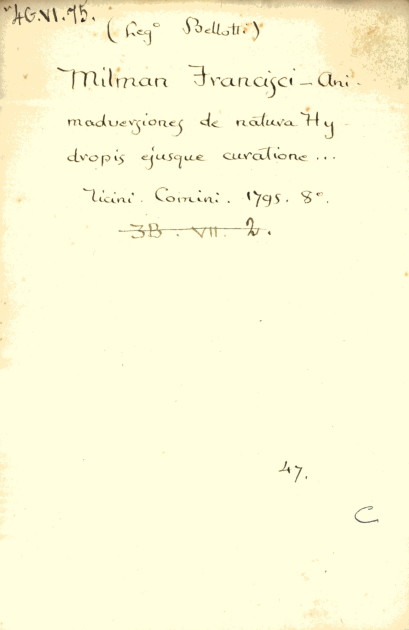 4G.VI.75.
(Leg° Bellotti)
Milman Francisci – Ani-
madversiones de natura Hy-
dropis ejusque curatione...
Ticini. Comini. 1795. 8°.
3B. VII. 2.
47.
C